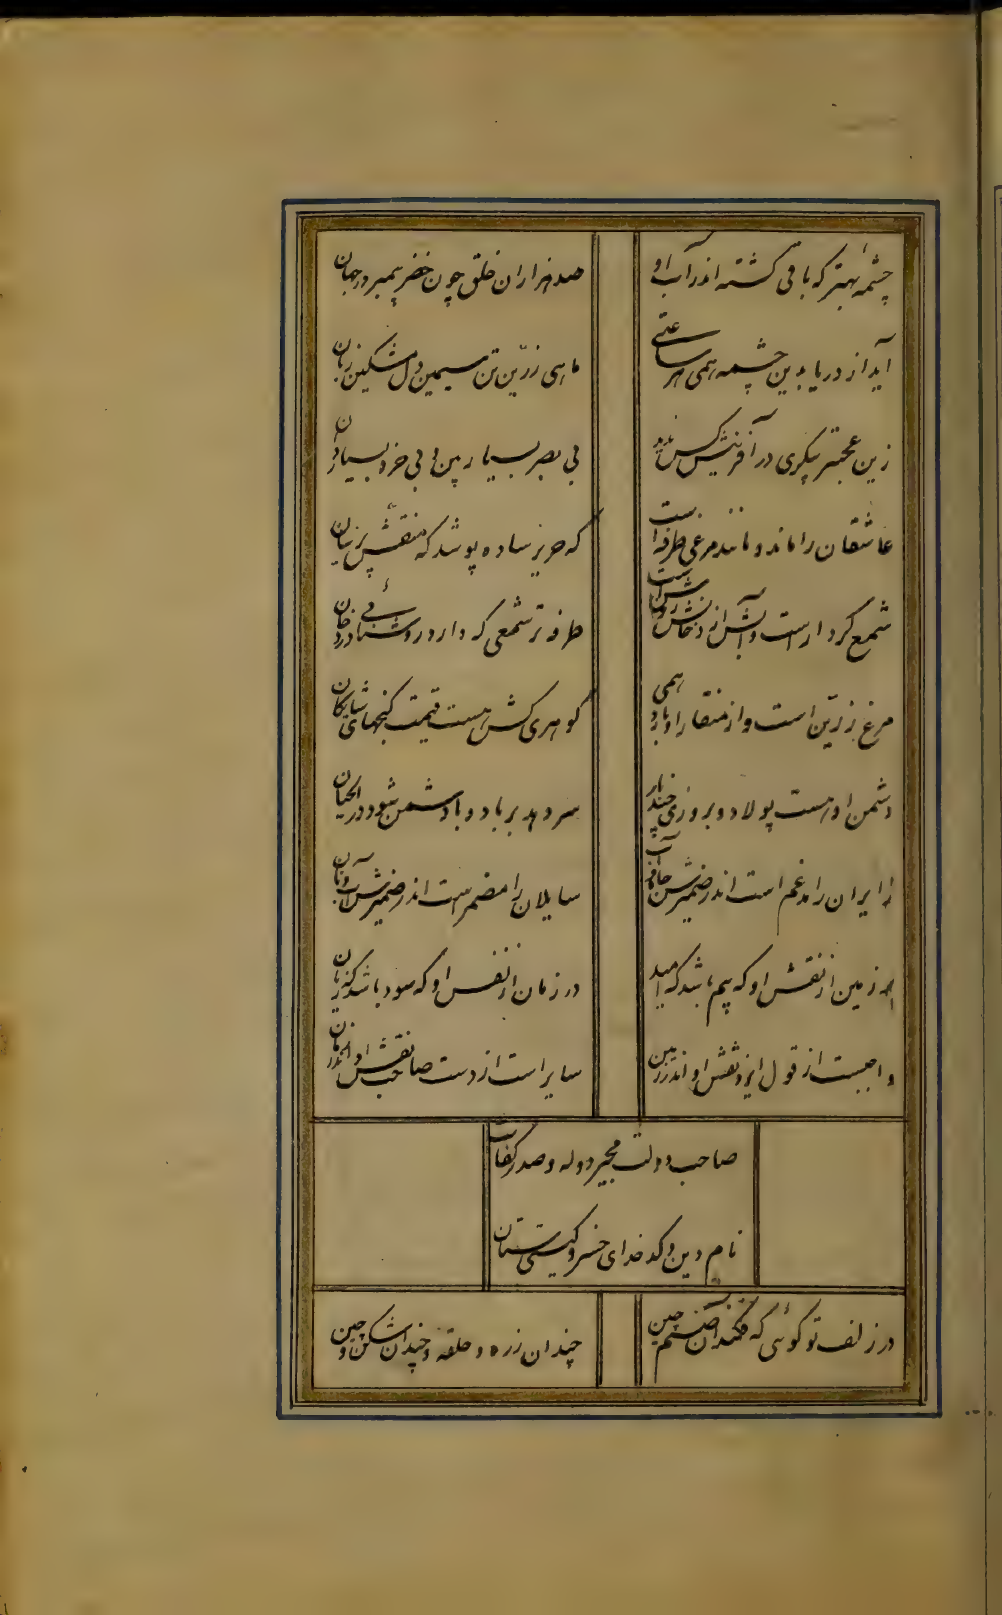 چشمه بهتر که باقی گشته اندر آب او
صد هزاران خلق چون خضر پیمبر در جهان
آید از دریا بدین چشمه همی هر ساعتی
ماهی زرّین تن سیمین دل مشکین زبان
زین عجبتر پیکری در آفرینش کس ندید
بی بصر بسیار بین و بی خرد بسیار دان
عاشقان را ماند و مانند مرغی طرفه است
که حریر ساده پوشد که منقش پرنیان
شمع کردار است و
طرفه تر شمعی که دارد روشنائی در دخان
مرغ زرّین است و از منقار او بارد همی
گوهری کش هست قیمت گنجهای شایگان
دشمن او هست پولاد و بروزی چند بار
سر دهد بر باد و با دشمن شود در
زایران را مدغم است اندر ضمیرش
سایلان را مضمر است اندر ضمیرش آب و نان
در زمین از نقش او که بیم باشد که امید
در زمان از نفس او که سود باشد که زیان
واجبست از قول ایزد نقش او اندر زمین
سایر است از دست صاحب نقش او اندر زمان
صاحب دولت مجیر دوله و صدر کفات
نام دین و کدخدای خسرو گیتی ستان
در زلف تو گوئی که فکند آن صنم چین
چندان زره و حلقه و چندان شکن و چین